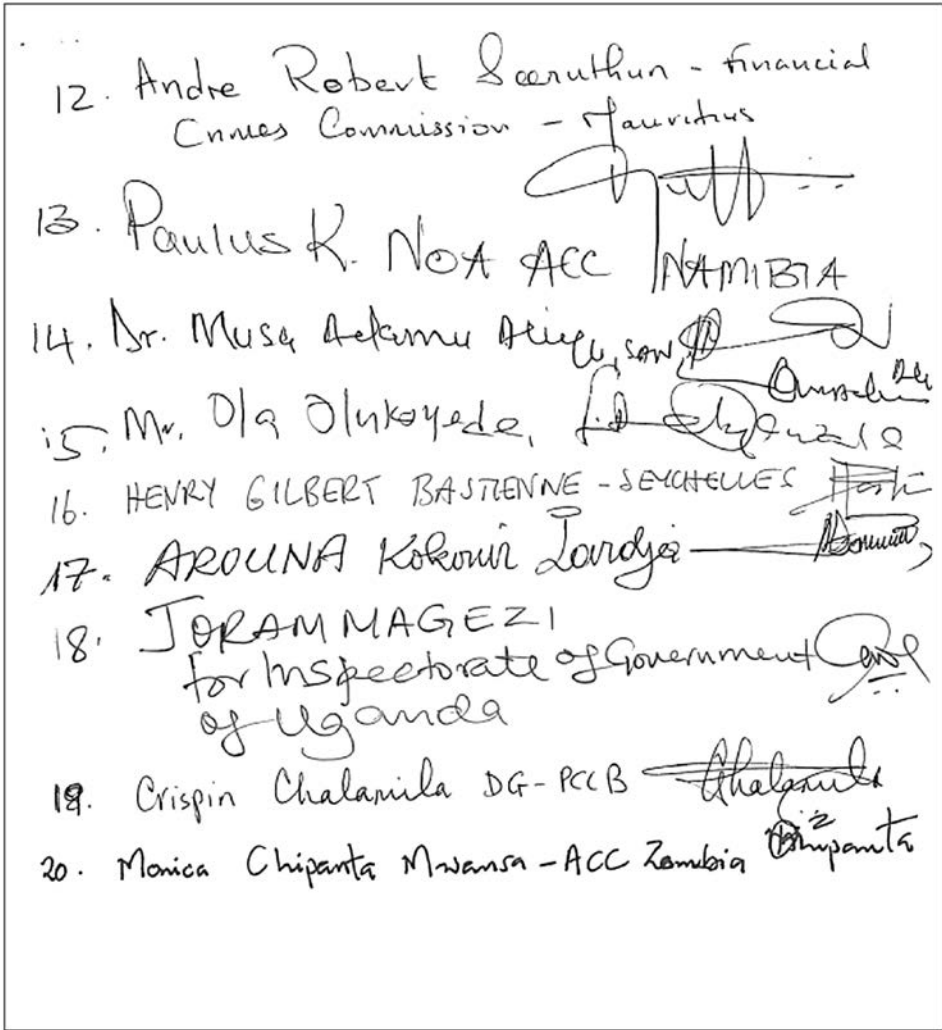 12. Andre Robert Seeruthun - Financial
Crimes Commission - Mauritius
13. Paulus K. NOA ACC NAMIBIA
14. Dr. Musa Adamu Aliyu, SAN,
15. Mr. Ola Olukoyede,
16. HENRY GILBERT BASTIENNE - SEYCHELLES
17. AROUNA
18. JORAM MAGEZI
for Inspectorate of Government
of Uganda
19. Crispin Chalamila DG-PCCB Chalamila
20. Monica Chipanta Mwansa - ACC Zambia Chipanta